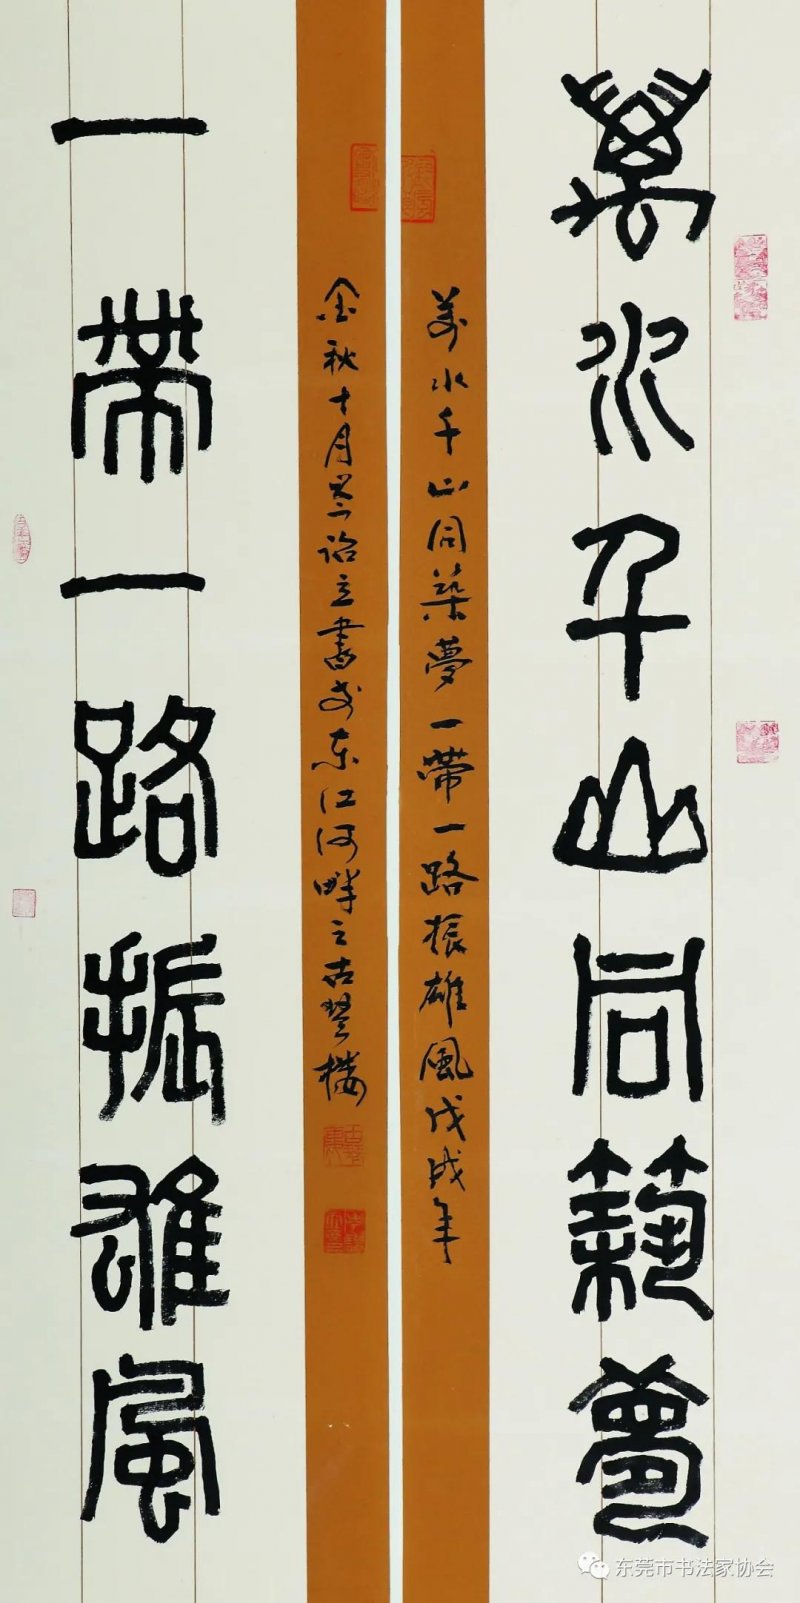 萬水千山同築夢
萬水千山同築夢一帶一路振雄風戊戌年
金秋十月立書於东江河畔之古琴樓
一帶一路振雄風
东莞市书法家协会